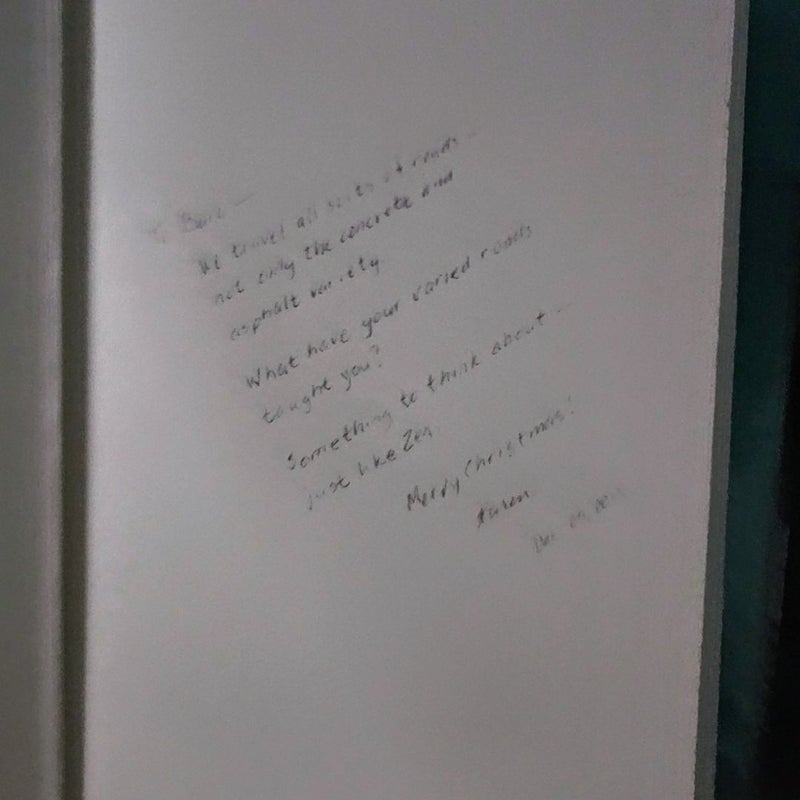 We travel all sorts of roads -
not only the concrete and
asphalt variety.
What have your varied roads
taught you?
Something to think about ...
Just like Zen
Merry Christmas!